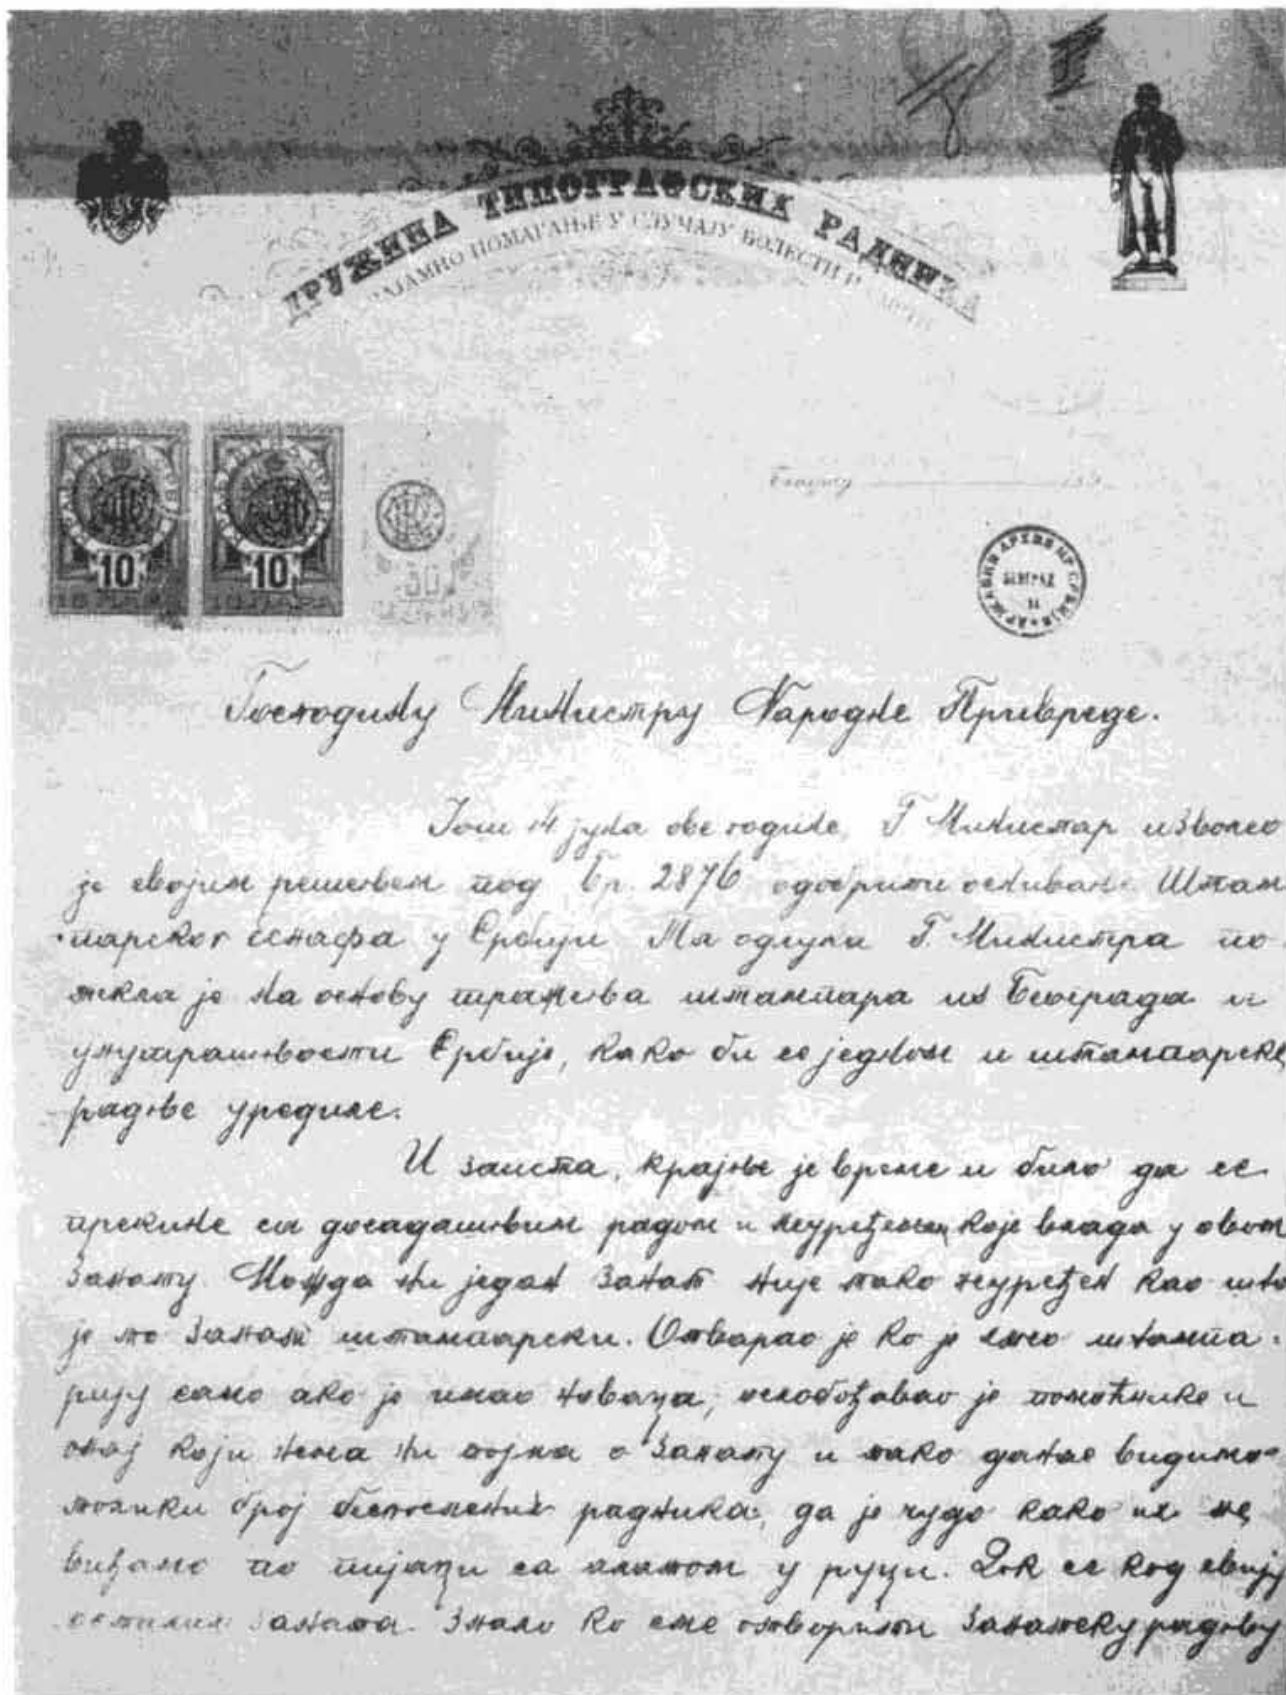 ДРУЖИНА ТИПОГРАФСКИХ РАДНИКА
УЗАЈАМНО ПОМАГАЊЕ У СЛУЧАЈУ БОЛЕСТИ И СМРТИ
10 10 30
10 ПАРА 10 ПАРА
Београд 189
ДРЖАВНИ АРХИВ НР СРБИЈЕ
БЕОГРАД
Господину Министру Народне Привреде.
Још 14 јула ове године, Г Министар изволео
је својим решењем под Бр. 2876 одобрити оснивање Штам
парског еснафа у Србији Та одлука Г. Министра по
текла је на основу тражења штампара из Београда и
унутрашњости Србије, како би се једном и штампарске
радње уредиле.
И заиста, крајње је време и било да се
прекине са досадашњим радом и неуређеношћу које влада у овом
занату Можда ни један занат није тако неуређен као што
је то занат штампарски. Отварао је ко је хтео штампа-
рију само ако је имао новаца; ослобођавао је помоћнике и
онај који нема ни појма о занату и тако данас видимо
толики број беспослених радника, да је чудо како их не
виђамо по пијаци са алатом у руци. Док се код свију
осталих заната знало ко сме отворити занатску радњу